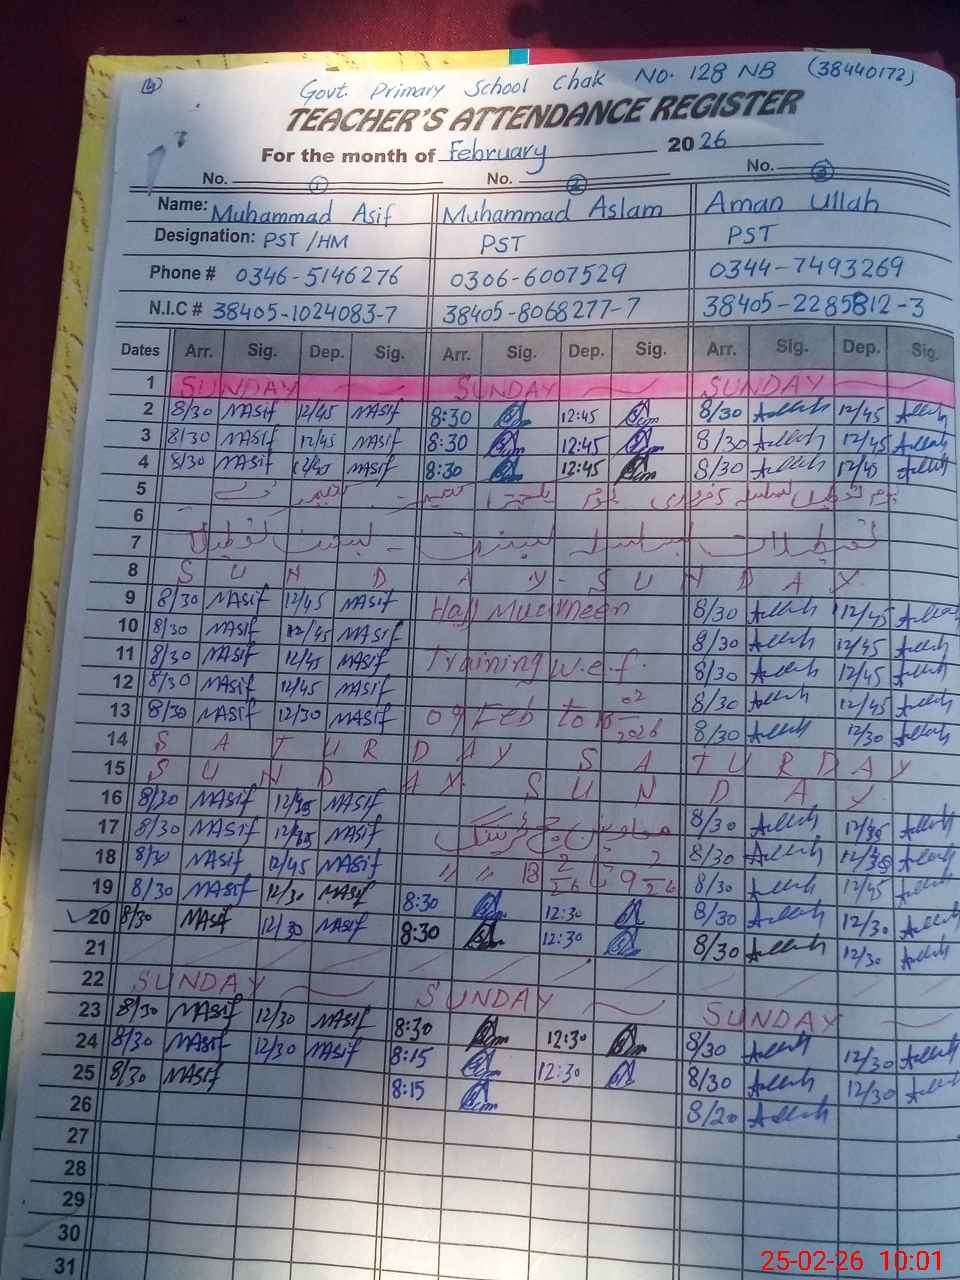 Govt. Primary School Chak No. 128 NB (38440172)
TEACHER'S ATTENDANCE REGISTER
For the month of February 2026
No. 1 No. 2 No. 3
Name: Muhammad Asif Muhammad Aslam Aman Ullah
Designation: PST /HM PST PST
Phone # 0346-5146276 0306-6007529 0344-7493269
N.I.C # 38405-1024083-7 38405-8068277-7 38405-2285812-3
Dates Arr. Sig. Dep. Sig. Arr. Sig. Dep. Sig. Arr. Sig. Dep. Sig.
1 SUNDAY SUNDAY SUNDAY
2 8/30 MASif 12/45 MASif 8:30 12:45 8/30 12/45
3 8/30 MASif 12/45 MASif 8:30 12:45 8/30 12/45
4 8/30 MASif MASif 8:30 12:45 8/30 12/45
5
6
7
8 SUNDAY - SUNDAY
9 8/30 MASif 12/45 MASif Hajj 8/30 12/45
10 8/30 MASif 12/45 MASif 8/30 12/45
11 8/30 MASif 12/45 MASif Training w.e.f. 8/30 12/45
12 8/30 MASif 12/45 MASif 8/30 12/45
13 8/30 MASif 12/30 MASif 09 Feb to 02 2026 8/30 12/30
14 SATURDAY SATURDAY
15 SUNDAY SUNDAY
16 8/30 MASif MASif 8/30
17 8/30 MASif MASif 8/30
18 8/30 MASif 12/45 MASif " " 8/30 12/45
19 8/30 MASif 12/30 MASif 8:30 12:30 8/30 12/30
20 8/30 MASif 12/30 MASif 8:30 12:30 8/30 12/30
21
22 SUNDAY SUNDAY SUNDAY
23 8/30 MASif 12/30 MASif 8:30 12:30 8/30 12/30
24 8/30 MASif 12/30 MASif 8:15 12:30 8/30 12/30
25 8/30 MASif 8:15 8/20
26
27
28
29
30
31
25-02-26 10:01